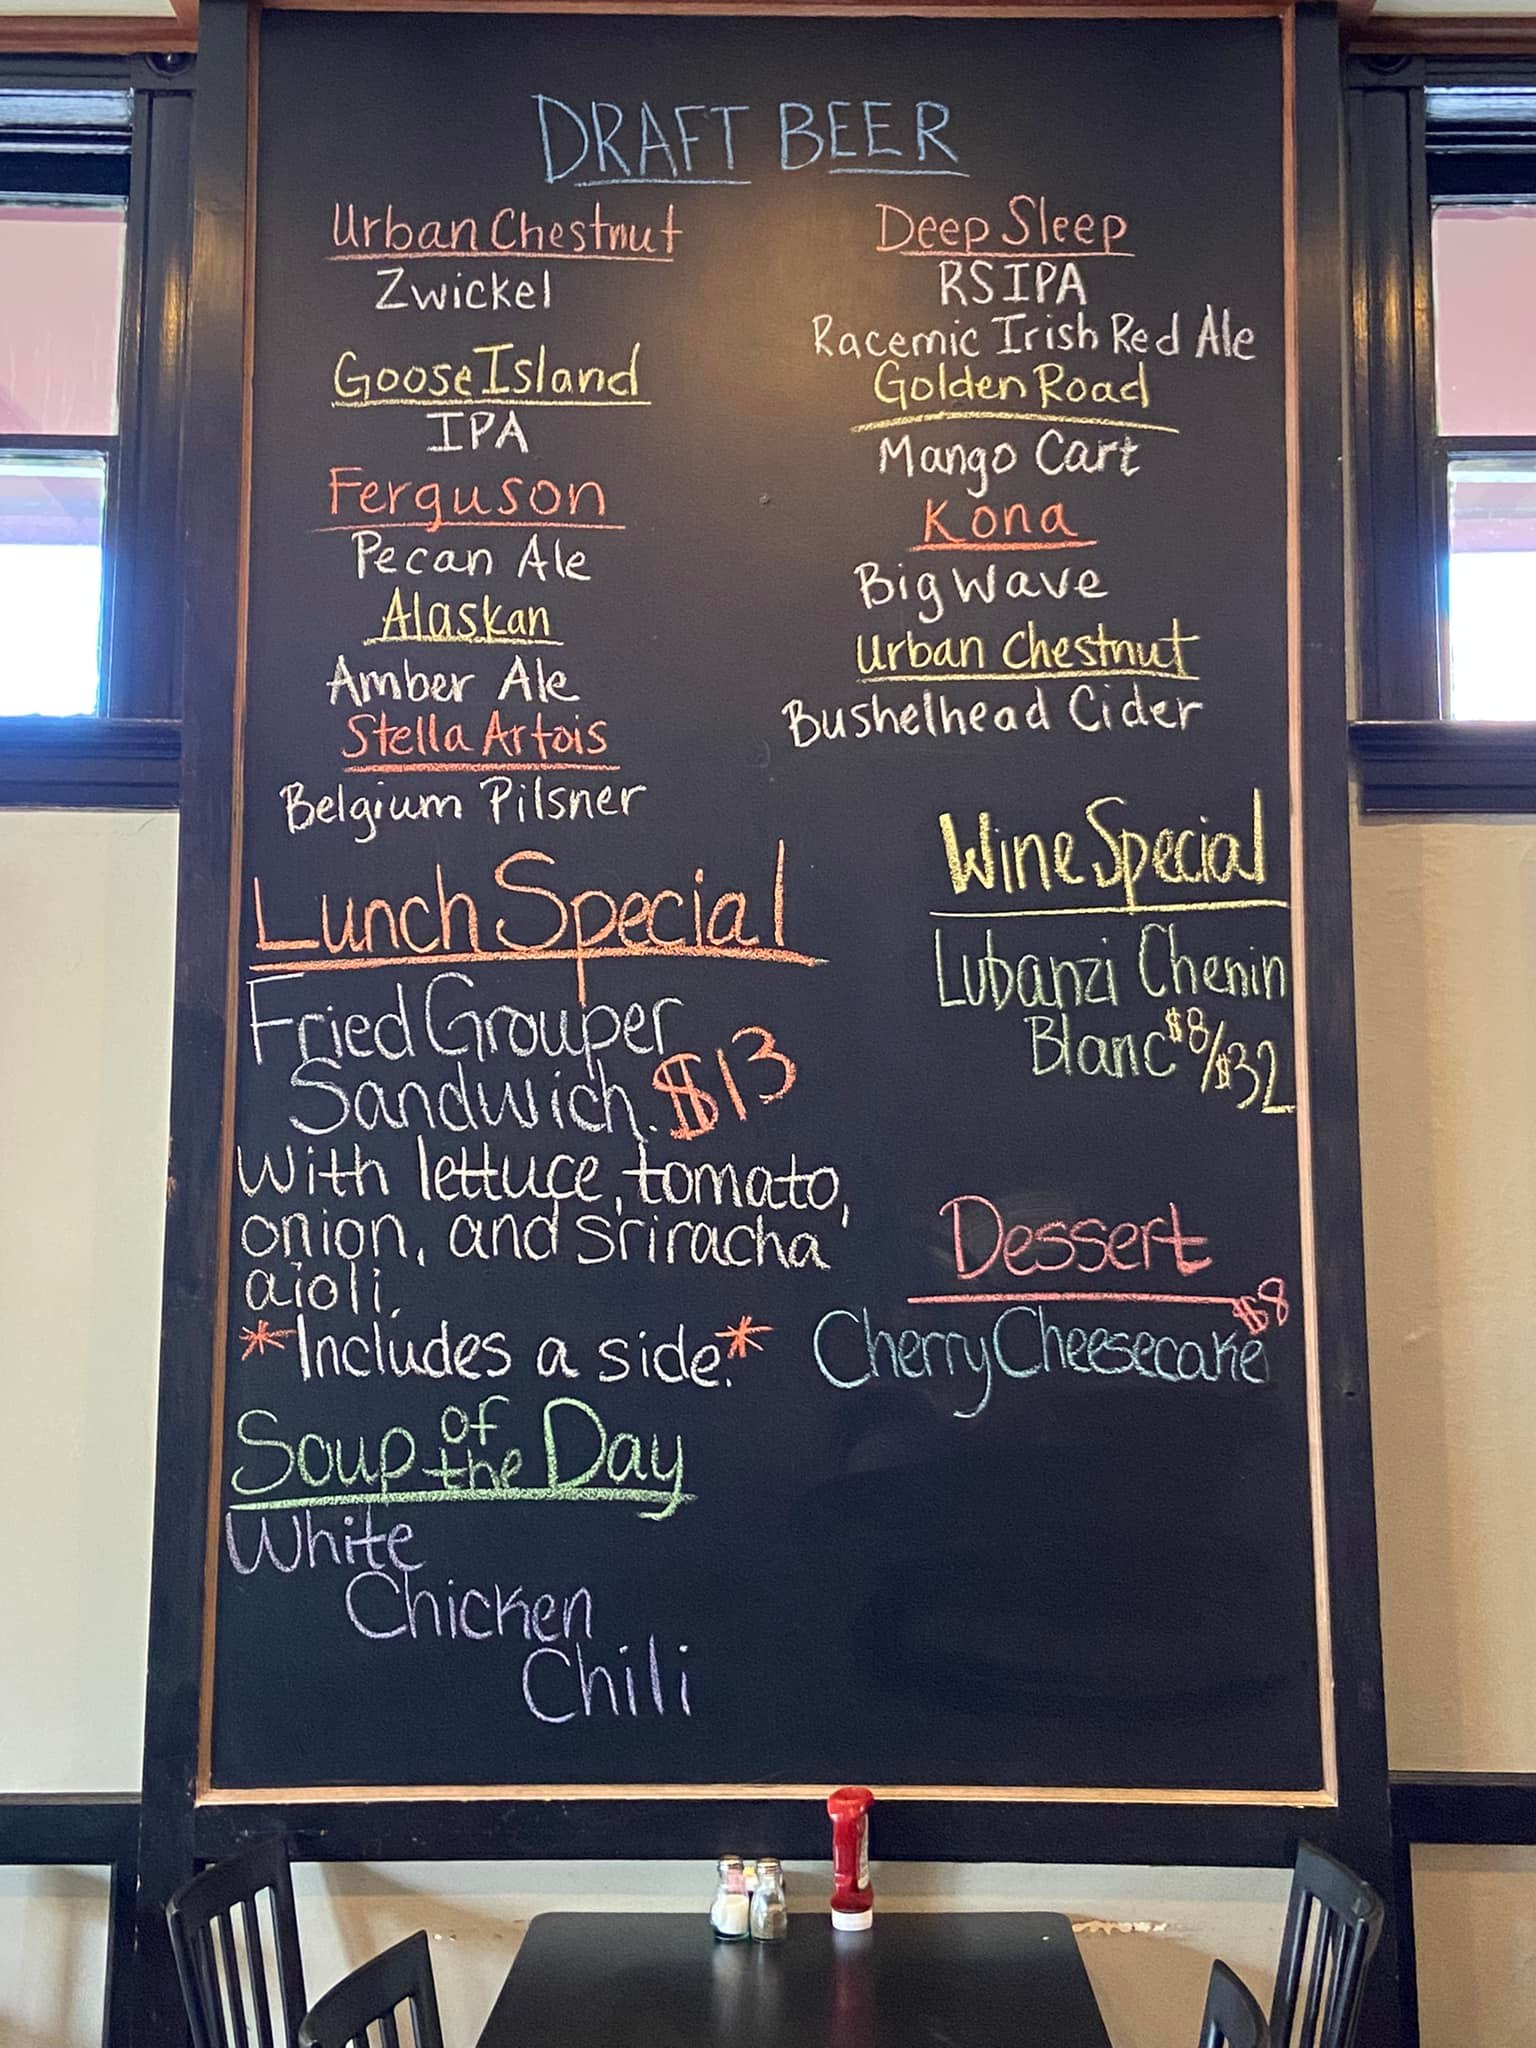 DRAFT BEER
Urban Chestnut
Zwickel
Goose Island
IPA
Ferguson
Pecan Ale
Alaskan
Amber Ale
Stella Artois
Belgium Pilsner
Deep Sleep
RSIPA
Racemic Irish Red Ale
Golden Road
Mango Cart
Kona
Big Wave
Urban Chestnut
Bushelhead Cider
Lunch Special
Fried Grouper
Sandwich. $13
With lettuce, tomato,
onion, and sriracha
aioli.
*Includes a side.*
Soup of the Day
White
Chicken
Chili
Wine Special
Lubanzi Chenin
Blanc $8/$32
Dessert
$8
Cherry Cheesecake